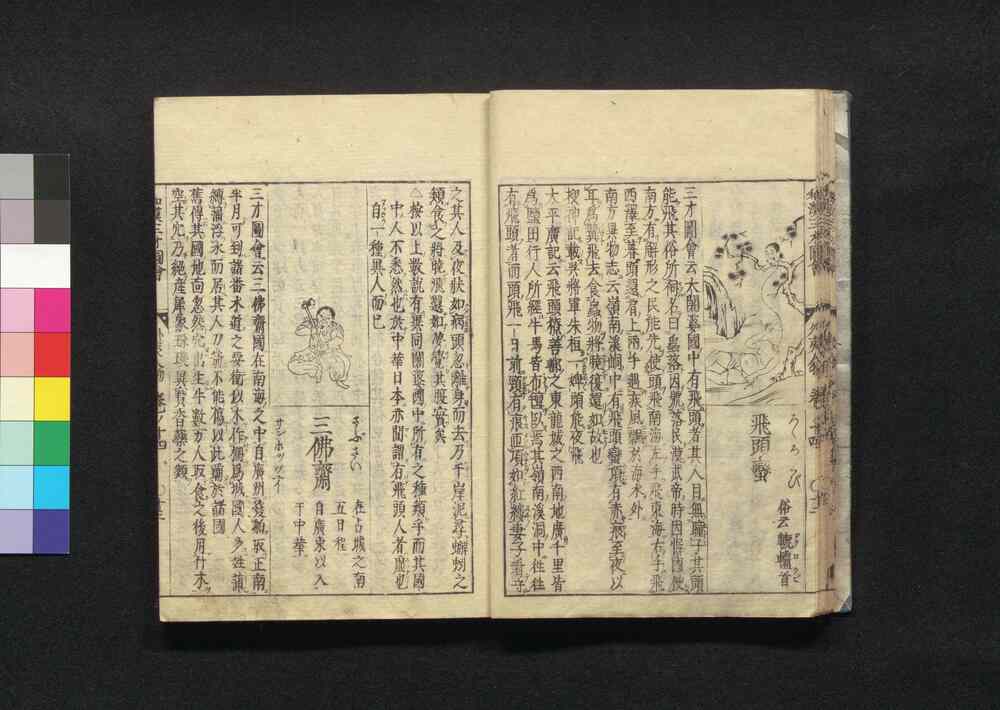 飛頭蠻
俗云轆轤首
三才圖會云大闍婆國中有飛頭者其人目無瞳子其頭
能飛其俗所祠名曰蟲落因號落民漢武帝時因
南方有解形之民能先使頭飛南海左手飛東海右手飛
西澤至暮頭還肩上兩手遇疾風飄於海水外
南方異物志云嶺南溪洞中有飛頭蠻項有赤痕至夜以
耳爲翼飛去食蟲物將曉復還如故也
搜神記載吳將軍朱桓一婢頭能夜飛
太平廣記云飛頭獠善鄯之東龍城之西南地廣千里皆
爲鹽田行人所經牛馬皆布氊臥焉其嶺南溪洞中往往
有飛頭者而頭飛一日前頸有痕匝項如紅縷妻子看守
之其人及夜狀如病頭忽離身而去乃于岸泥尋蟹蚓之
類食之將曉飛還如夢覺其腹實矣
△按以上數說有異同闍婆國中所有之種類乎而其國
中人不悉然也於中華日本亦間謂有飛頭人者虛也
自一種異人而已
三佛齊
さぶさい
サンホッツイ
在占城之南
五日程
自廣東以入
于中華
三才圖會云三佛齊國在南海之中自廣州發舶取正南
半月可到諸番水道之要衝以木作柵爲城國人多姓蒲
縛簰浮水而居其人刀箭不能傷以此霸於諸國
舊傳其國地面忽然穴出生牛數万人取食之後用竹木
窒其穴乃絕產犀象珠璣異寶香藥之類